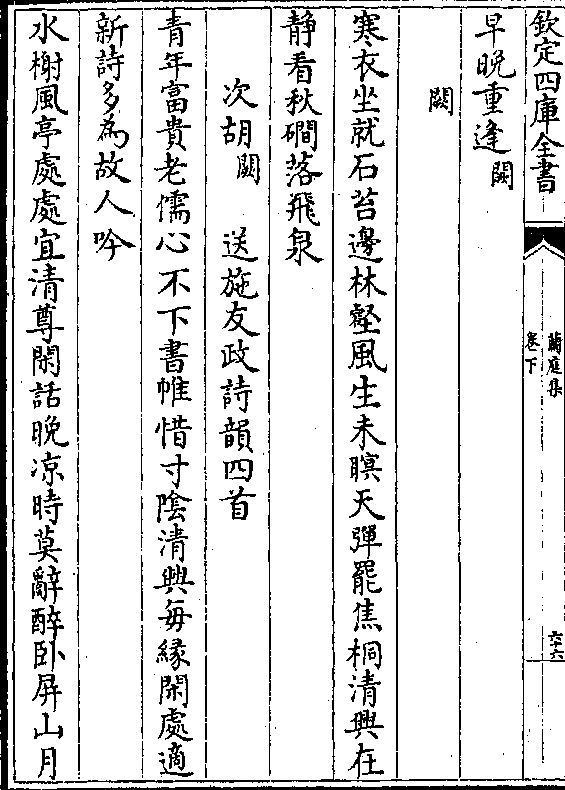 欽定四庫全書
蘭庭集
卷下
六十六
早晚重逢闕
闕
寒衣坐就石苔邊林壑風生未暝天彈罷焦桐清興在
静看秋磵落飛泉
次胡闕 送施友政詩韻四首
青年富貴老儒心不下書帷惜寸陰清興每緣閑處適
新詩多為故人吟
水榭風亭處處宜清尊閑話晚凉時莫辭醉卧屏山月